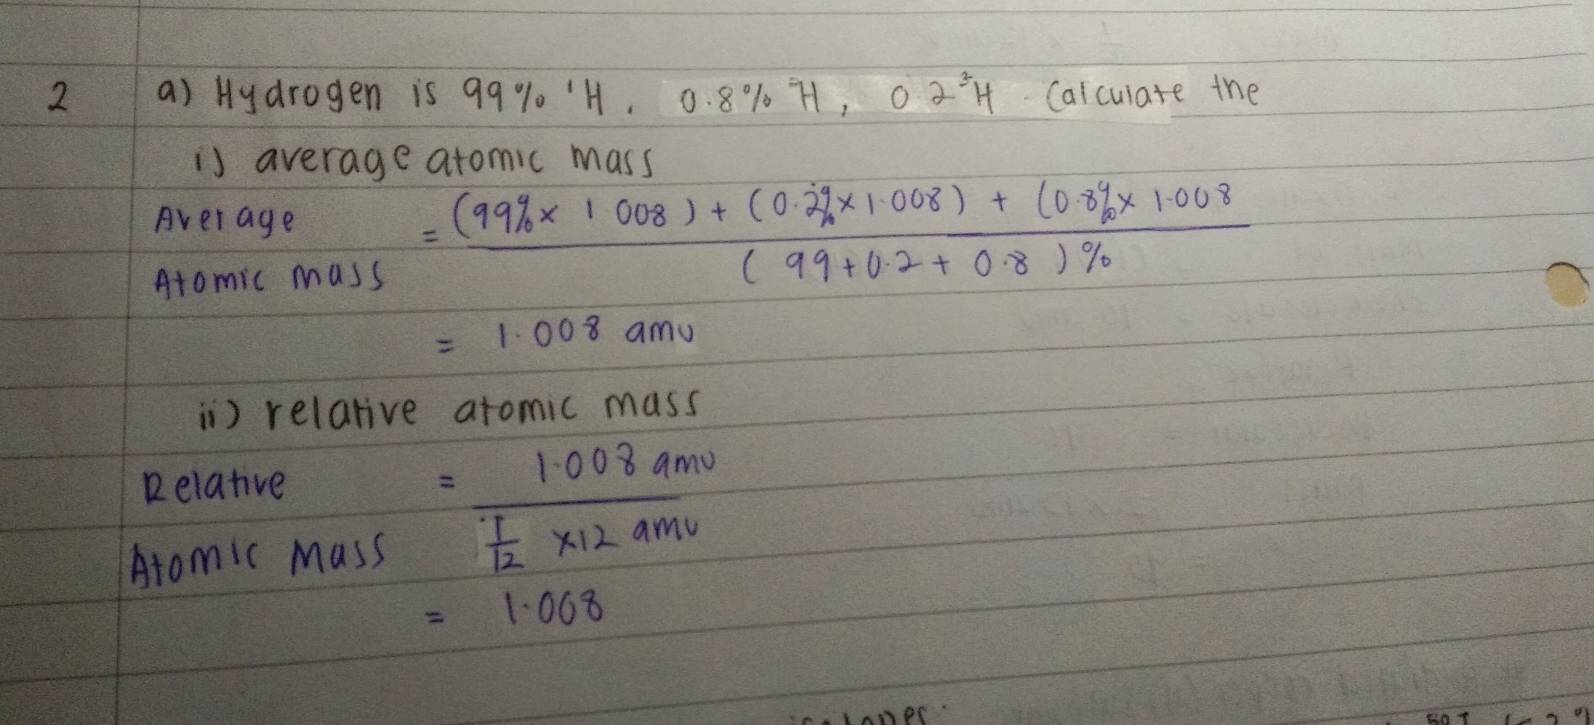 2 a) Hydrogen is 99% ¹H, 0.8% ²H, 0.2 ³H. Calculate the
i) average atomic mass
Average = (99% × 1.008) + (0.2% × 1.008) + (0.8% × 1.008
Atomic mass (99 + 0.2 + 0.8) %
= 1.008 amu
ii) relative atomic mass
Relative = 1.008 amu
Atomic Mass 1/12 × 12 amu
= 1.008